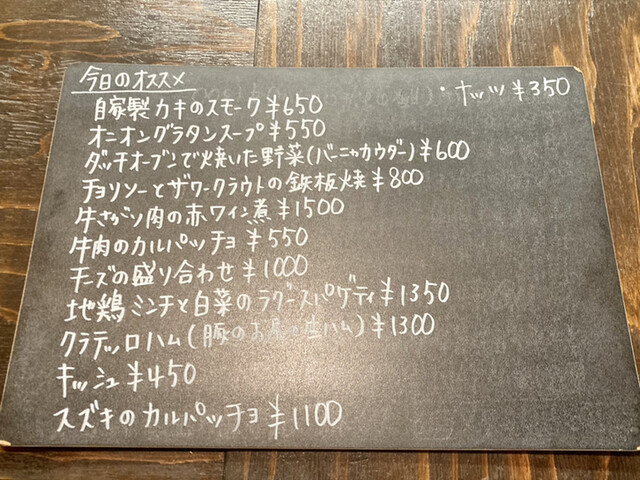 今日のオススメ
・ナッツ ¥350
自家製カキのスモーク ¥650
オニオングラタンスープ ¥550
ダッチオーブンで焼いた野菜(バーニャカウダー) ¥600
チョリソーとザワークラウトの鉄板焼 ¥800
牛さがり肉の赤ワイン煮 ¥1500
牛肉のカルパッチョ ¥550
チーズの盛り合わせ ¥1000
地鶏ミンチと白菜のラグースパゲティ ¥1350
クラテッロハム(豚のお尻の生ハム) ¥1300
キッシュ ¥450
スズキのカルパッチョ ¥1100